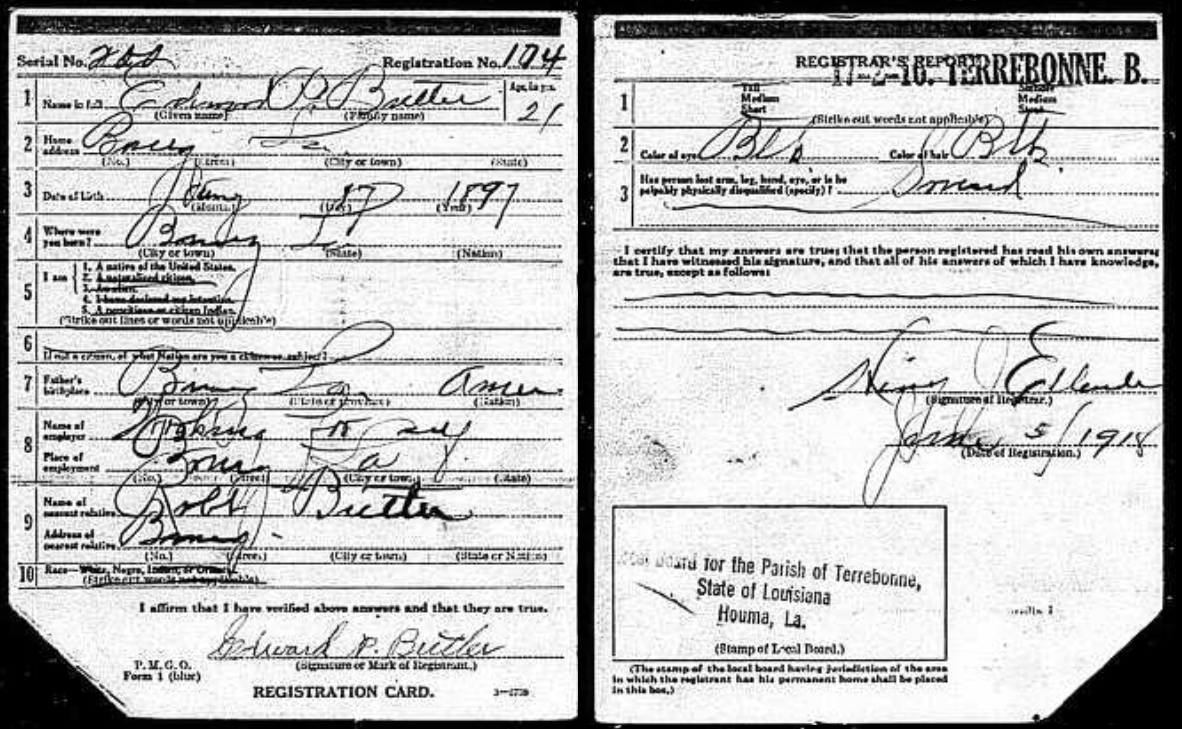 Serial No. 200 Registration No. 174
1 Name in full Edward P. Butler Age, in yrs. 21
(Given name) (Family name)
2 Home address La
(No.) (Street) (City or town) (State)
3 Date of birth 17 1897
(Month) (Day) (Year)
4 Where were you born? La
(City or town) (State) (Nation)
5 I am 1. A native of the United States.
2. A naturalized citizen.
3. An alien.
4. I have declared my intention.
5. A noncitizen or citizen Indian.
(Strike out lines or words not applicable)
6 If not a citizen, of what Nation are you a citizen or subject?
7 Father's birthplace La Amer
(City or town) (State or province) (Nation)
8 Name of employer
Place of employment La
(No.) (Street) (City or town) (State)
9 Name of nearest relative Robt Butler
Address of nearest relative
(No.) (Street) (City or town) (State or Nation)
10 Race—White, Negro, Indian, or Oriental.
(Strike out words not applicable)
I affirm that I have verified above answers and that they are true.
Edward P. Butler
P. M. G. O. (Signature or Mark of Registrant.)
Form 1 (blue)
REGISTRATION CARD.
REGISTRAR'S REPORT
17-2-10. TERREBONNE. B.
1 Tall Slender
Medium Medium
Short Stout
(Strike out words not applicable)
2 Color of eyes Blk Color of hair Blk
3 Has person lost arm, leg, hand, eye, or is he
palpably physically disqualified (specify)? Sound
I certify that my answers are true; that the person registered has read his own answers;
that I have witnessed his signature, and that all of his answers of which I have knowledge,
are true, except as follows:
Ellender
(Signature of Registrar.)
June 5/1918
(Date of Registration.)
Local Board for the Parish of Terrebonne,
State of Louisiana
Houma, La.
(Stamp of Local Board.)
(The stamp of the local board having jurisdiction of the area
in which the registrant has his permanent home shall be placed
in this box.)